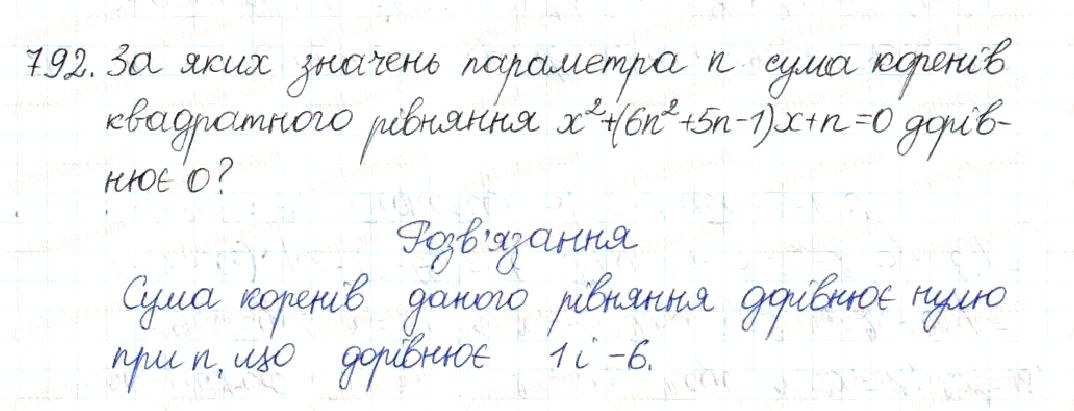 792. За яких значень параметра n сума коренів
квадратного рівняння x²+(6n²+5n-1)x+n=0 дорів-
нює 0?
Розв'язання
Сума коренів даного рівняння дорівнює нулю
при n, що дорівнює 1 і -6.